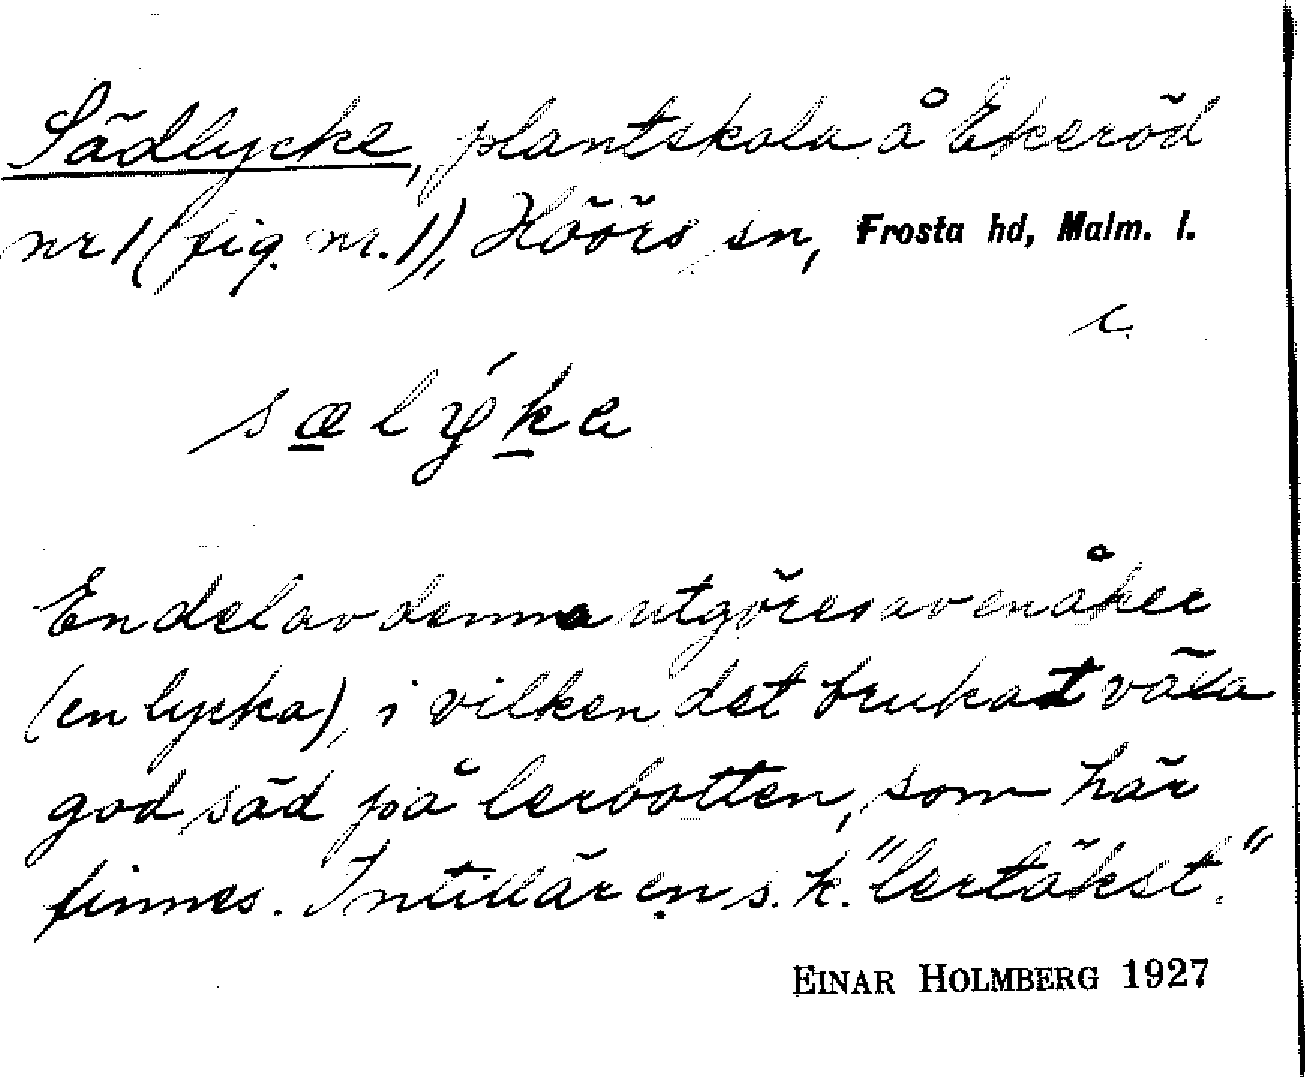 Sädlycke, plantskola å Ekeröd
nr 1 (fig. nr. 1), Höörs sn, Frosta hd, Malm. l.
c.
sælýke
En del av denna utgöres av en åker
(en lycka), i vilken det brukat växa
god säd på lerbotten, som här
finnes. Intill är en s.k. "lertäkst".
EINAR HOLMBERG 1927